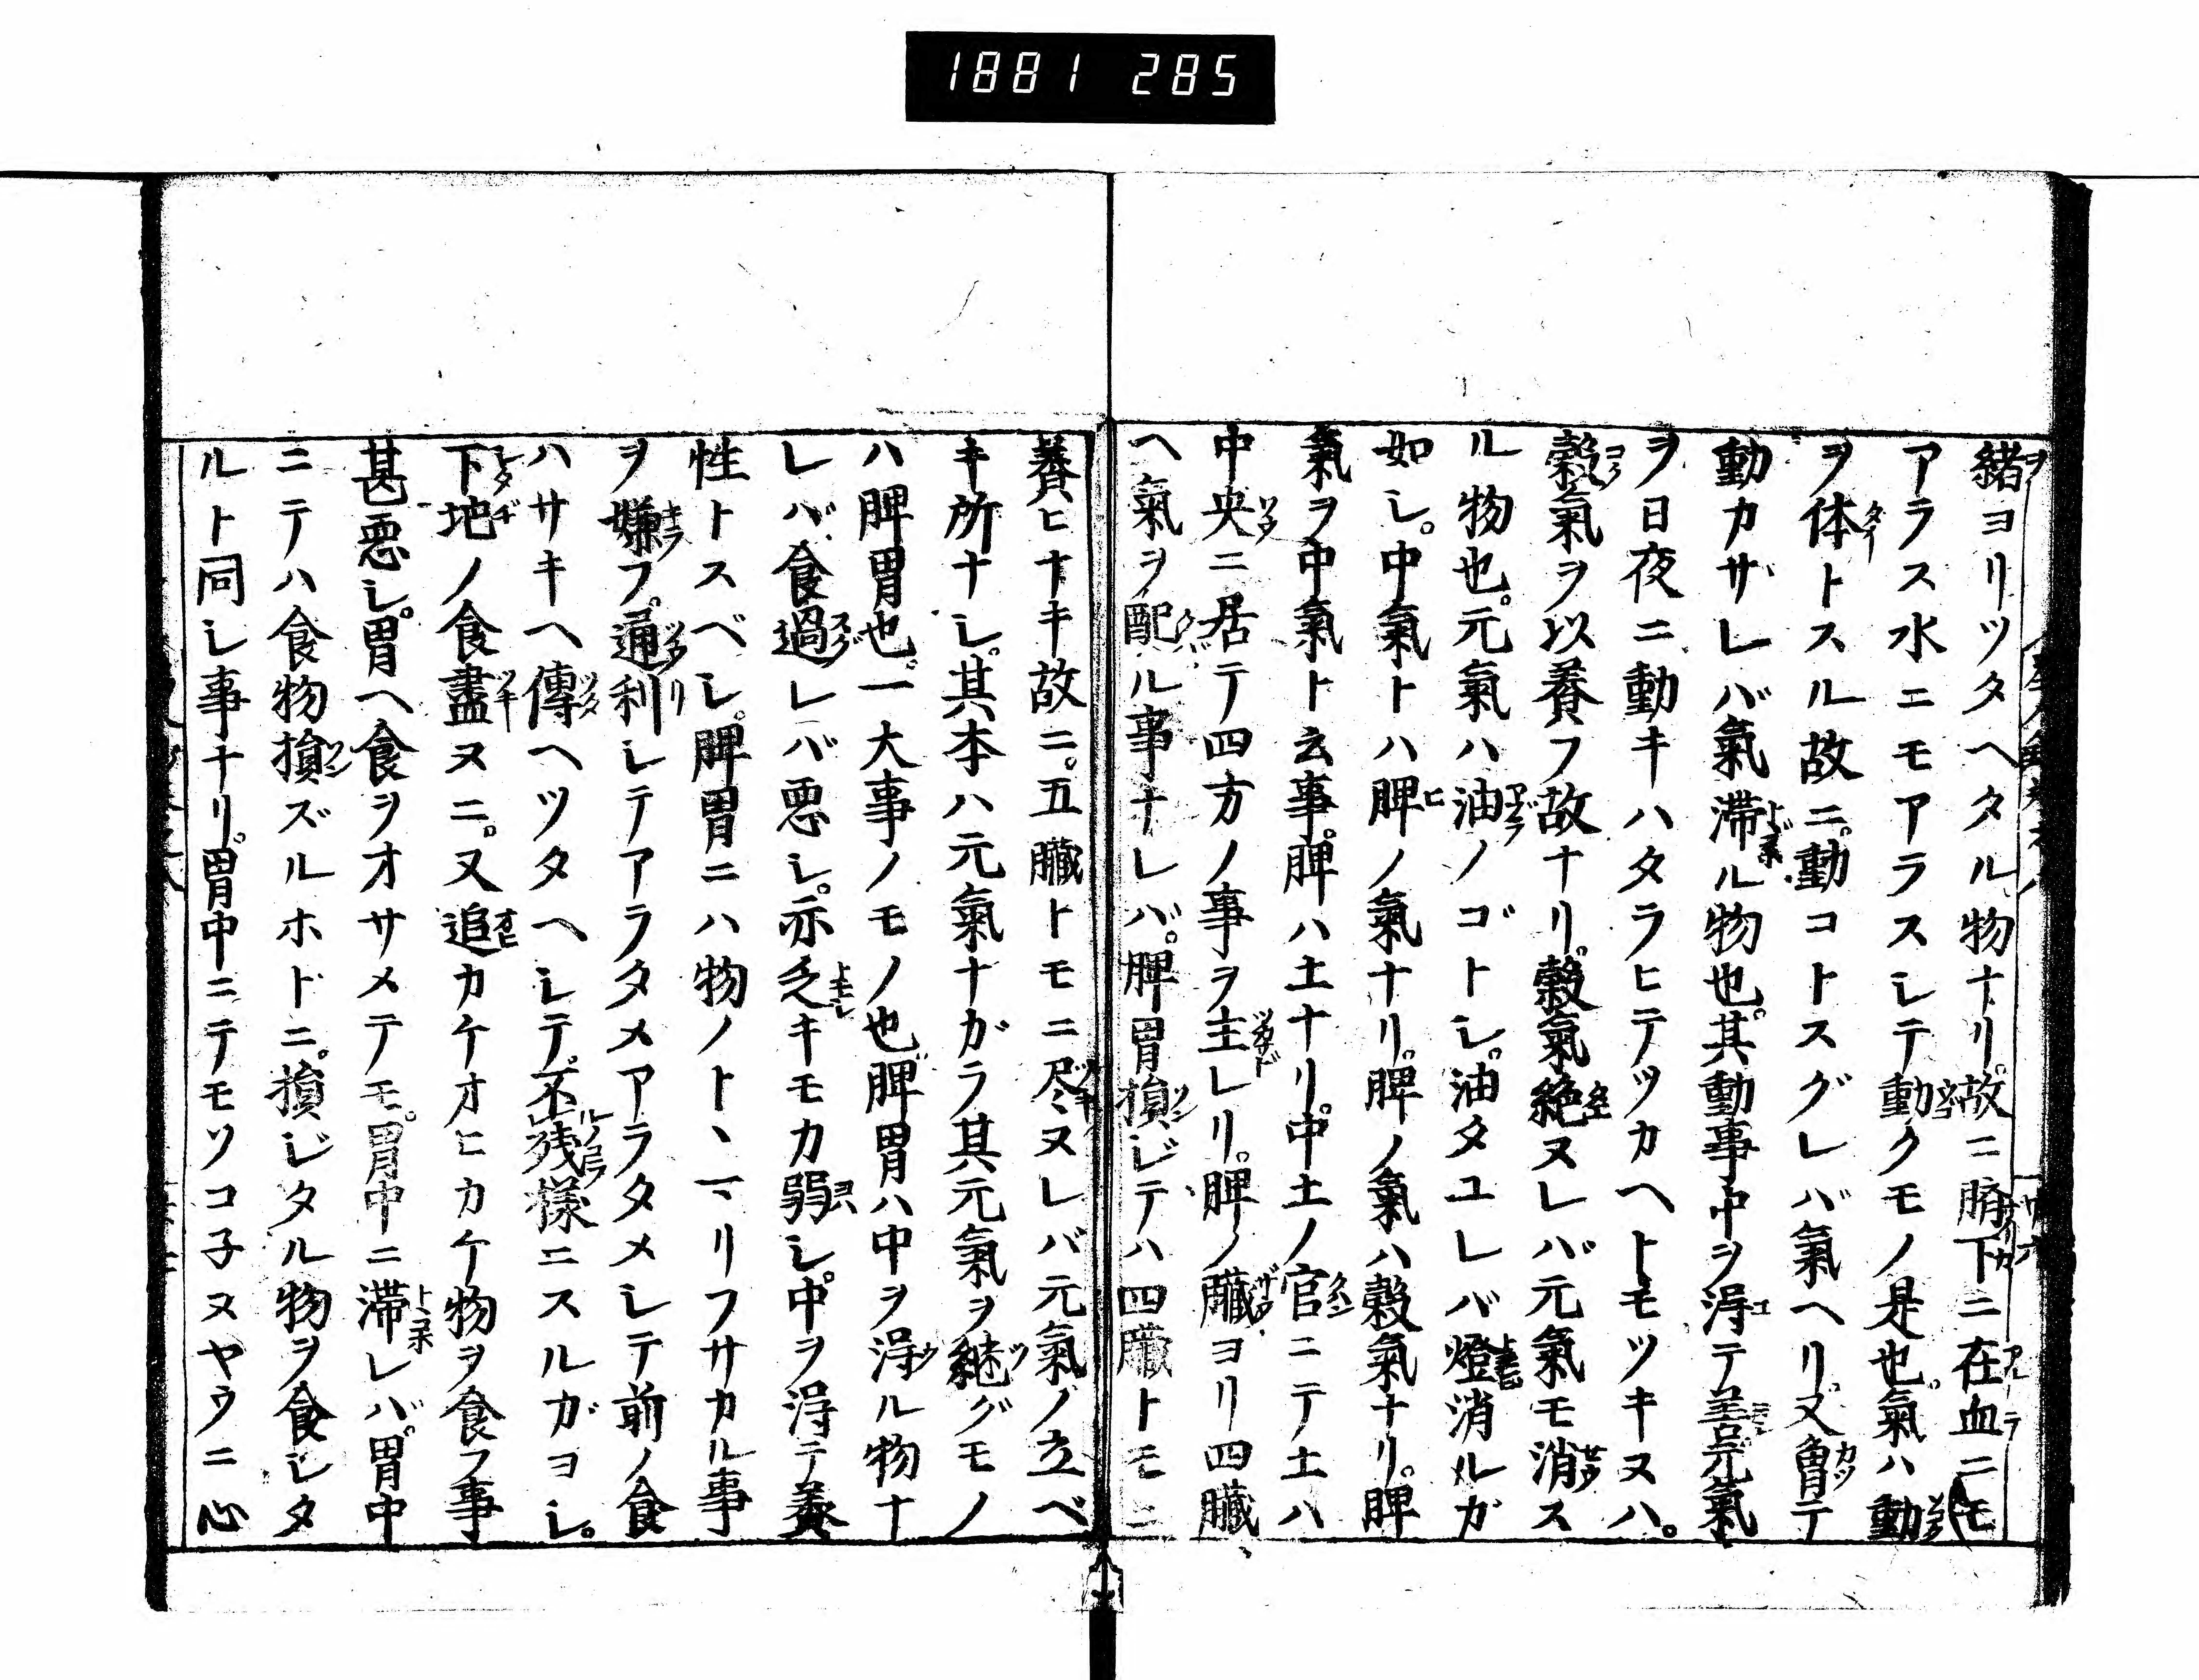 1881 285
緒ヨリツタヘタル物ナリ。故ニ臍下ニ在血ニモ
アラス水ニモアラスシテ動クモノ是也。氣ハ動
ヲ体トスル故ニ。動コトスグレバ氣ヘリ。又曾テ
動カサレバ氣滞ル物也。其動事中ヲ得テ善。元氣
ヲ日夜ニ動キハタラヒテツカヘトモツキヌハ。
穀氣ヲ以養フ故ナリ。穀氣絶ヌレバ元氣モ消ス
ル物也。元氣ハ油ノゴトシ。油タユレバ燈消ルガ
如シ。中氣トハ脾ノ氣ナリ。脾ノ氣ハ穀氣ナリ。脾
氣ヲ中氣ト云事。脾ハ土ナリ。中土ノ官ニテ土ハ
中央ニ居テ四方ノ事ヲ主レリ。脾ノ臓ヨリ四臓
ヘ氣ヲ配ル事ナレバ。脾胃損ジテハ四臓トモニ
養ヒナキ故ニ。五臓トモニ尽ヌレバ元氣ノ立ベ
キ所ナシ。其本ハ元氣ナガラ其元氣ヲ継グモノ
ハ脾胃也。一大事ノモノ也。脾胃ハ中ヲ得ル物ナ
レバ食過レバ悪シ。亦乏キモカ弱シ。中ヲ得テ養
性トスベシ。脾胃ニハ物ノトヽマリフサカル事
ヲ嫌フ。通利シテアラタメアラタメシテ前ノ食
ハサキヘ傳ヘツタヘシテ。不残様ニスルガヨシ。
下地ノ食盡ヌニ。又追カケオヒカケ物ヲ食フ事
甚悪シ。胃ヘ食ヲオサメテモ。胃中ニ滞レバ。胃中
ニテハ食物損ズルホドニ。損ジタル物ヲ食シタ
ルト同シ事ナリ。胃中ニテモソコ子ヌヤウニ心